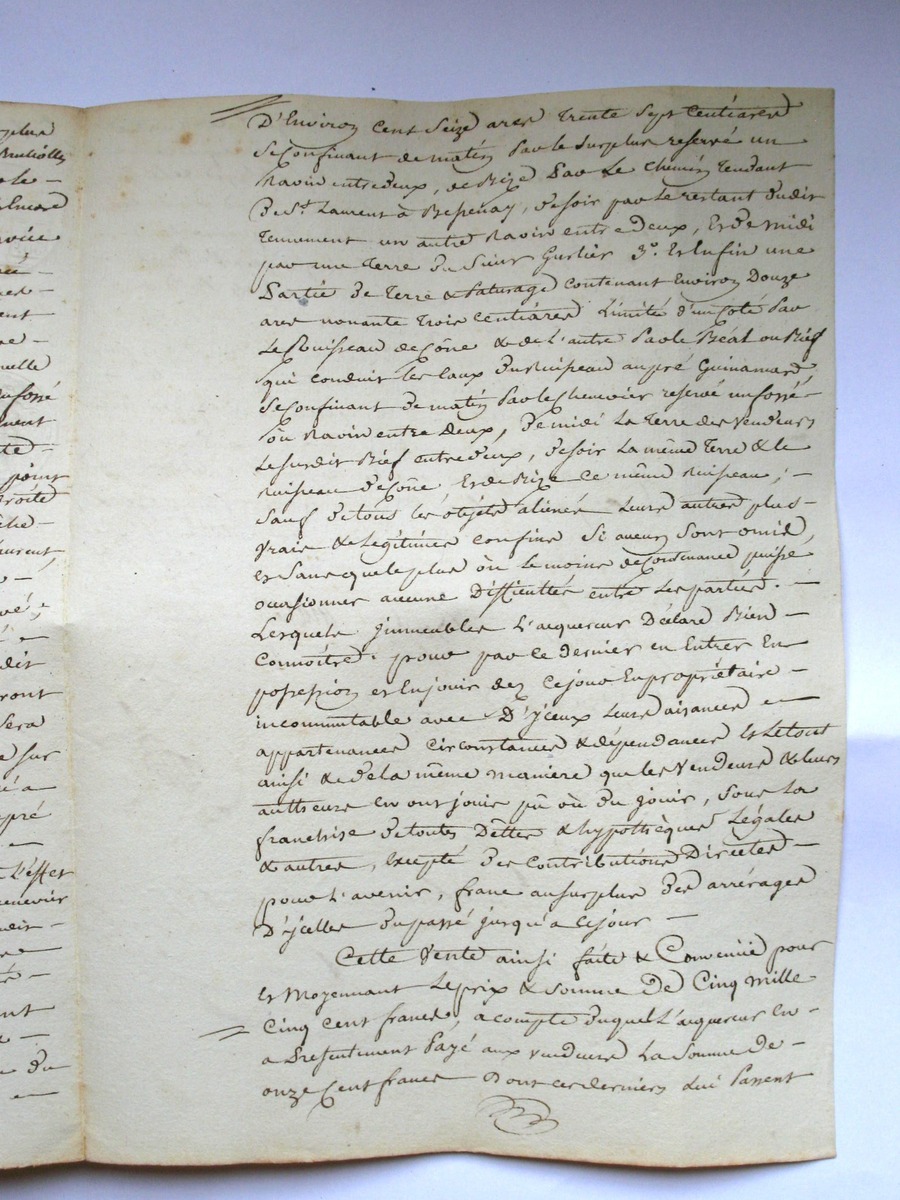 plus
ole -
encore
-
ent
ne -
uelle
fossé
ment
te -
point
droite
che -
aurent,
vé,
dit
ront
sera
e sur
é a
pré
L'effet
ent
du
D'Environ Cent Seize ares trente Sept Centiares
Se Confinant de matin Par le Surplus reservé un
Ravin entredeux, de Bize Par Le Chemin tendant
de St. Laurent à Bessenay, de soir par Le restant dudit
tennement un autre Ravin entre Deux, et de midi
par une terre du Sieur 3°. Et Enfin une
Partie de terre & Paturage Contenant Environ Douze
ares nonante trois Centiares Limité d'un Coté Par
Le Ruisseau de Cône & de L'autre Par le Béal ou Bief
qui Conduit les Eaux du Ruisseau au pré Guinamard
Se Confinant de matin Par le Chenevier reservé un fossé -
où Ravin entre Deux, de midi La terre des Vendeurs
Le Susdit Bief entredeux, de soir La même terre & le
Ruisseau de Cône et de Bize Ce même Ruisseau ; -
Sauf de tous les objets aliénés Leurs autres plus -
Vrais & Légitimes Confins Si aucun Sont omis,
et Sans que le plus où Le moins de Contenance puisse
occasionner aucune Difficultés entre Les parties. -
Lesquels Jmmeubles L'acquereur Déclare Bien -
Connoître. pour par Ce dernier en Entrer En
possession et En jouir dez Ce jour En propriétaire -
incommutable avec D'yceux Leurs aisances -
appartenances Circonstances & dépendances Et Le tout
ainsi & de la même maniere que les Vendeurs & leurs
autheurs en ont jouis pû où du jouir, Sous La
franchise de toutes Dettes & hypothèques Légales
& autres, Excepté des Contributions Directes -
pour L'avenir, franc au Surplus des arrérages
D'ycelles du passé jusqu'à Ce jour -
Cette Vente ainsi faite & Convenüe pour
et Moyennant Le prix & Somme De Cinq mille
Cinq Cent francs, a compte duquel L'acquereur en -
a Présentement Payé aux Vendeurs La Somme de -
onze Cent francs Dont ces derniers Lui Passent